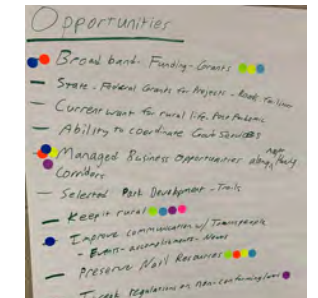 Opportunities
Broad band - Funding - Grants
State - Federal Grants for Projects - Roads
Current want for rural life. Post Pandemic
Ability to coordinate Govt Services
Managed Business Opportunities along major Hwy
Corridors
Selected Park Development - Trails
Keep it rural
Improve communication w/ Townspeople
- Events - accomplishments - News
Preserve Nat'l Resources
regulations on non-conforming lots